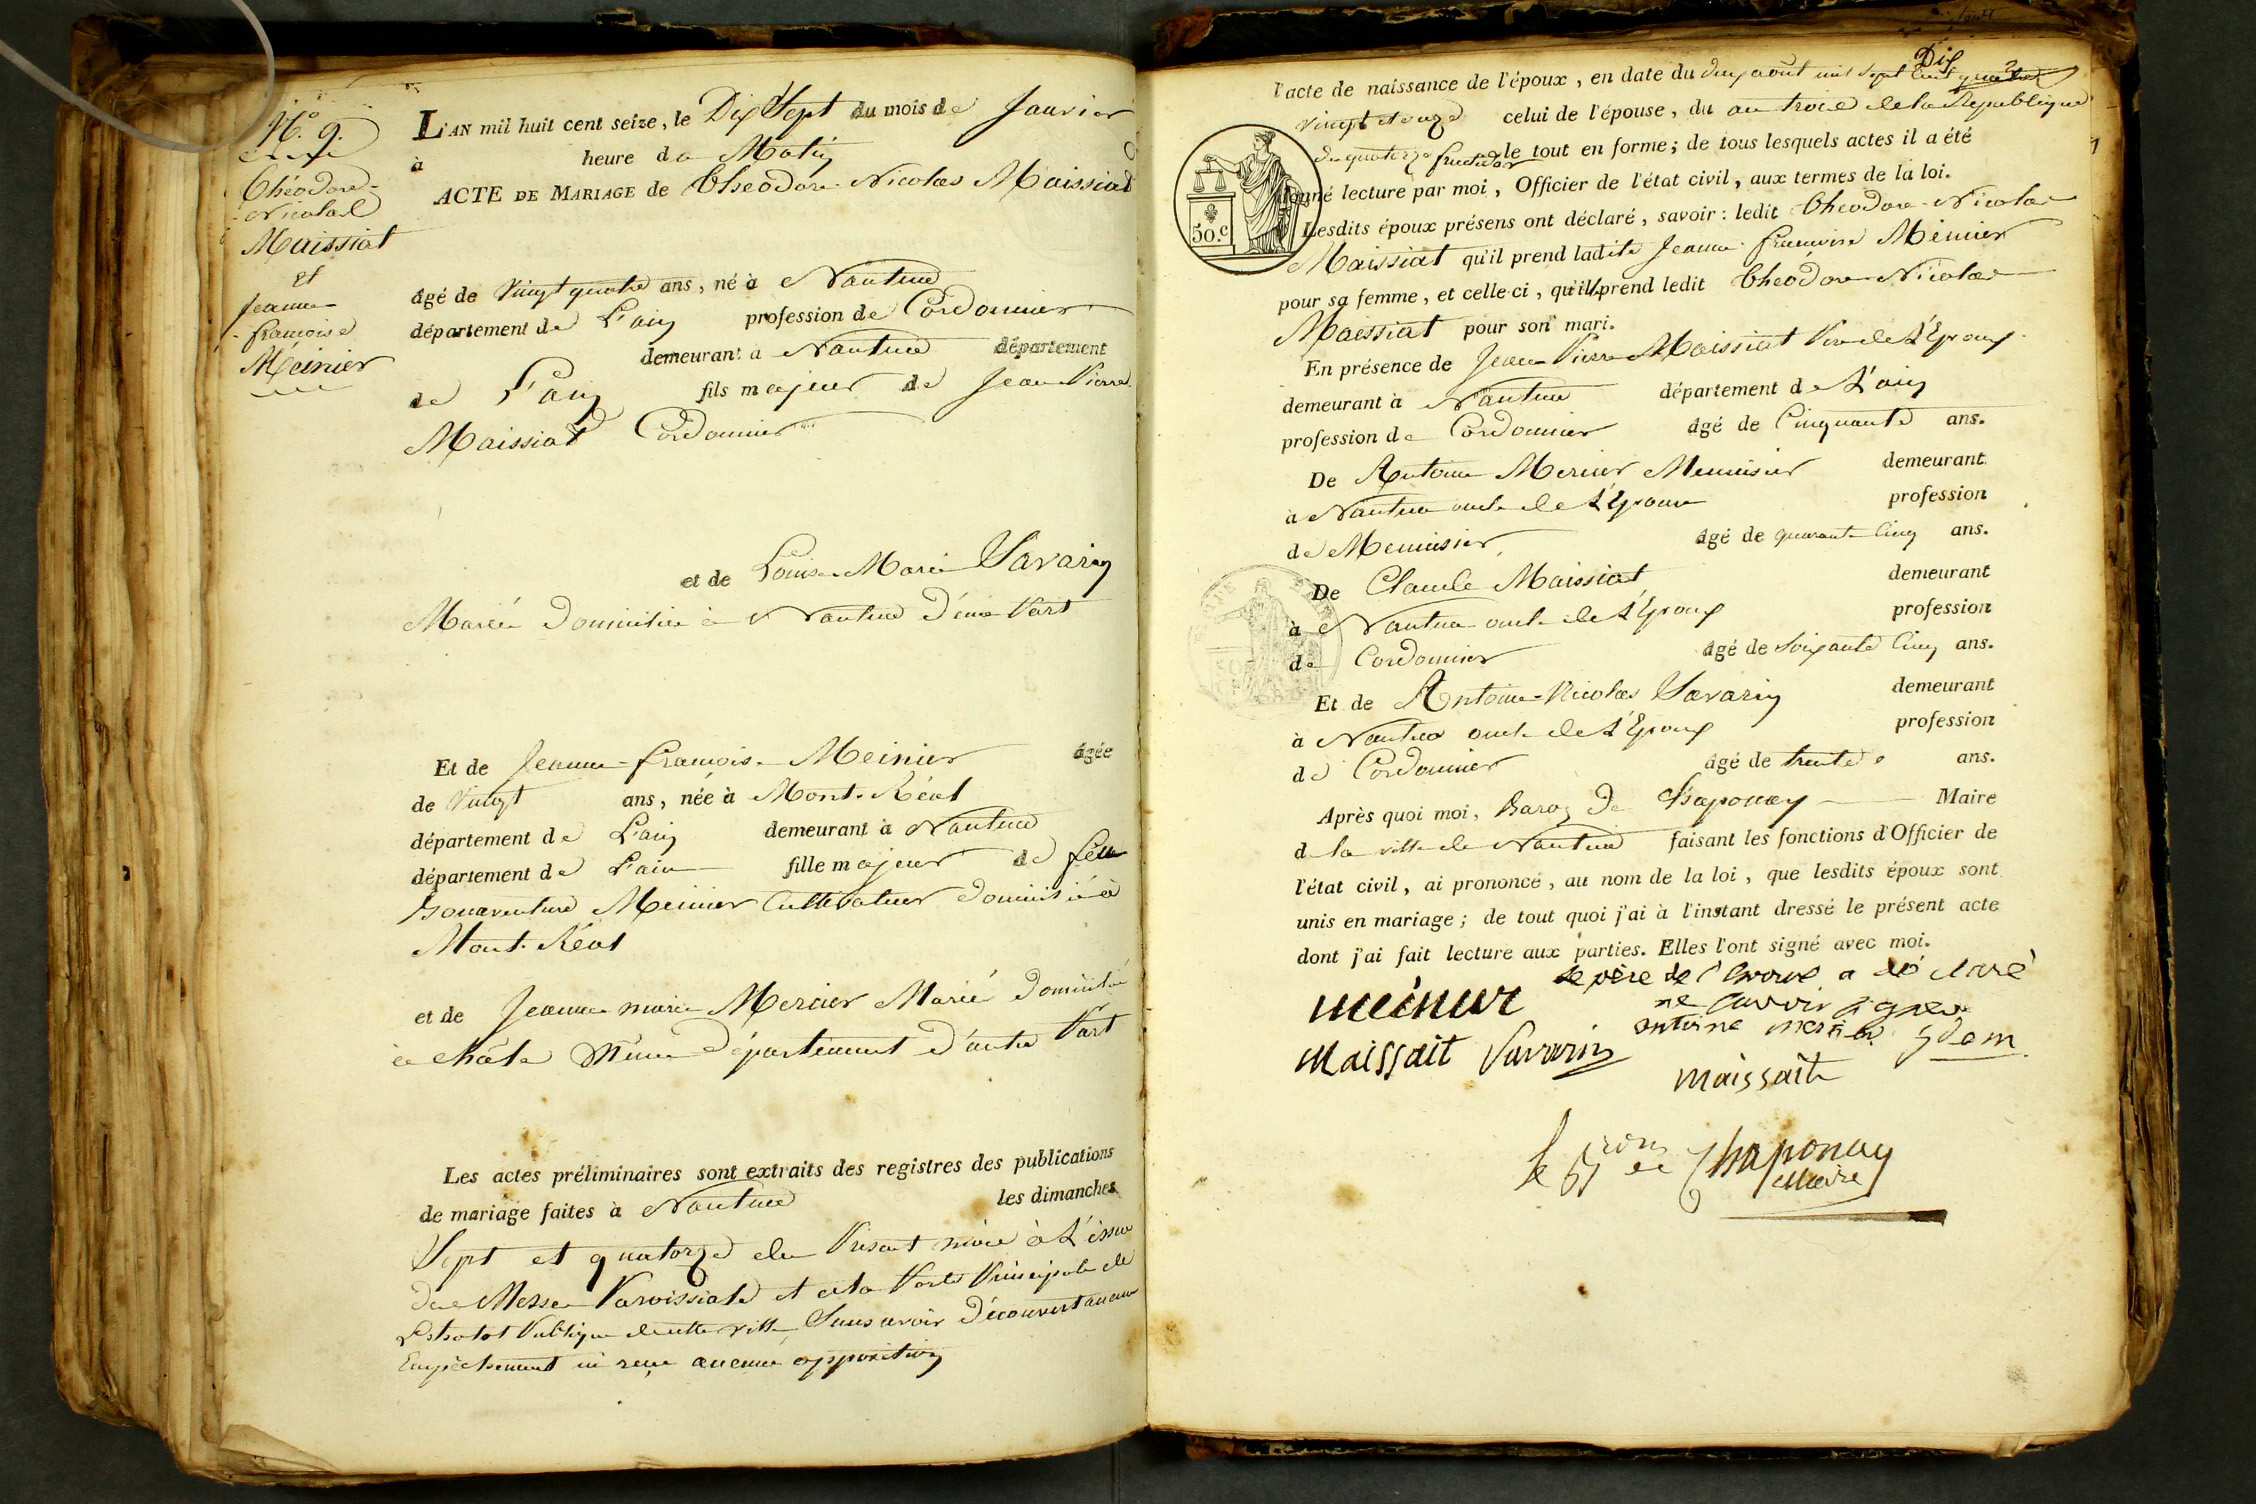 N.o 9.
Théodore-
Nicolas
Maissiat
et
Jeanne
françoise
Meinier
L'AN mil huit cent seize, le Dix Sept du mois de Janvier
à heure du Matin
ACTE DE MARIAGE de Théodore Nicolas Maissiat
âgé de Vingt quatre ans, né à Nantua
département de L'ain profession de Cordonnier
demeurant à Nantua département
de L'ain fils majeur de Jean Pierre
Maissiat Cordonnier
et de Louise Marie Savarin
Mariée domiciliée à Nantua d'une Part
Et de Jeanne-françoise Meinier âgée
de Vingt ans, née à Mont-Réal
département de L'ain demeurant à Nantua
département de L'ain fille majeur de feu
Bonaventure Meinier Cultivateur domicilié à
Mont-Réal
et de Jeanne marie Mercier Mariée domiciliée
à Même département d'autre Part
Les actes préliminaires sont extraits des registres des publications
de mariage faites à Nantua les dimanches
Sept et quatorze du Présent mois à L'issue
de Messe Paroissiale et à la Porte Principale de
Publique de cette ville Sans avoir découvert aucun
Empêchement ni reçu aucune opposition
Dix
l'acte de naissance de l'époux, en date du deux aout mil sept Cent quatre
vingt et onze celui de l'épouse, du an trois de la République
du quatorze fructidor le tout en forme; de tous lesquels actes il a été
donné lecture par moi, Officier de l'état civil, aux termes de la loi.
50.c
Lesdits époux présens ont déclaré, savoir: ledit Théodore-Nicolas
Maissiat qu'il prend ladite Jeanne françoise Meinier
pour sa femme, et celle-ci, qu'ill prend ledit Théodore Nicolas
Maissiat pour son mari.
En présence de Jean Pierre Maissiat Père de L'Epoux
demeurant à Nantua département de L'ain
profession de Cordonnier âgé de Cinquante ans.
De Antoine Mercier Menuisier demeurant
à Nantua oncle de L'Epouse profession
de Menuisier âgé de quarante Cinq ans.
De Claude Maissiat demeurant
à Nantua oncle de L'Epoux profession
de Cordonnier âgé de soixante Cinq ans.
Et de Antoine-Nicolas Savarin demeurant
à Nantua oncle de L'Epoux profession
de Cordonnier âgé de trente ans.
Après quoi moi, Baron De Chaponay Maire
de la ville de Nantua faisant les fonctions d'Officier de
l'état civil, ai prononcé, au nom de la loi, que lesdits époux sont
unis en mariage; de tout quoi j'ai à l'instant dressé le présent acte
dont j'ai fait lecture aux parties. Elles l'ont signé avec moi.
le père de l'Epoux a déclaré
meinier ne savoir signer
antoine mercier Idem
Maissait Savarin
maissait
le Bron de Chaponay
Maire